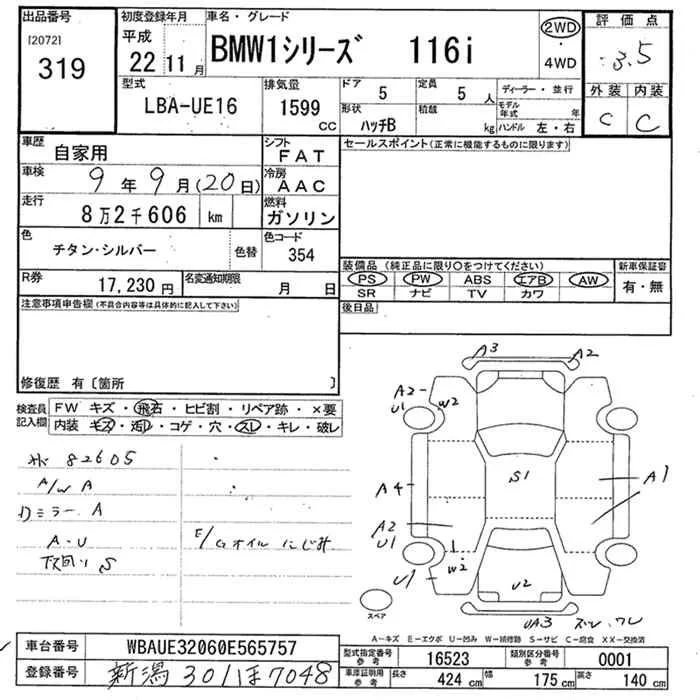 出品番号
[2072]
319
初度登録年月
平成
22 11月
車名・グレード
BMW1シリーズ 116i
2WD
・
4WD
評価点
3.5
外装 内装
C C
型式
LBA-UE16
排気量
1599
CC
ドア
5
定員
5 人
形状
ハッチB
積載
kg
ディーラー・並行
モデル年式 年
ハンドル 左・右
車歴
自家用
シフト
FAT
セールスポイント(正常に機能するものに限ります)
車検
9年9月(20日)
冷房
AAC
走行
8万2千606 km
燃料
ガソリン
色
チタン・シルバー
色替
色コード
354
装備品(純正品に限り○をつけてください)
PS PW ABS エアB AW
SR ナビ TV カワ
新車保証書
有・無
R券
17,230円
名変通知期限
月 日
後日品
注意事項申告欄(不具合内容等は具体的に記入して下さい)
修復歴 有〔箇所 〕
検査員記入欄
FW キズ・飛石・ヒビ割・リペア跡・×要
内装 キズ・汚レ・コゲ・穴・スレ・キレ・破レ
82605
A/W A
ミラー A
A・U
下回り S
E/Gオイルにじみ
A3 A2
A2 U1 W2
S1
A4 A1
A2 U1
U1 W2 U2
UA3
スペア
A－キズ E－エクボ U－凹み W－補修跡 S－サビ C－腐食 XX－交換済
車台番号
WBAUE32060E565757
登録番号
新潟 301 ほ 7048
型式指定番号
参考
16523
類別区分番号
参考
0001
車庫証明用
参考
長さ
424 cm
幅
175 cm
高さ
140 cm